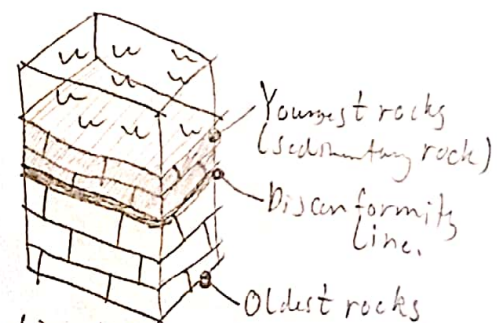 Youngest rocks
(sedimentary rock)
Disconformity
line.
Oldest rocks